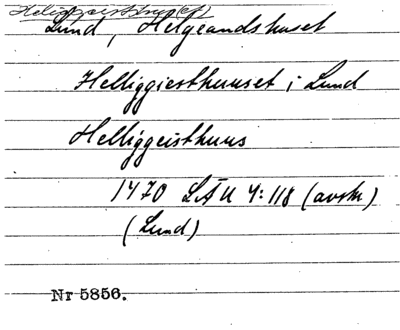 Helliggeisthus (cf)
Lund, Helgeandshuset
Helliggiesthuuset i Lund
Helliggeisthuus
1470 LÄU 4:118 (avskr)
(Lund)
Nr 5856.